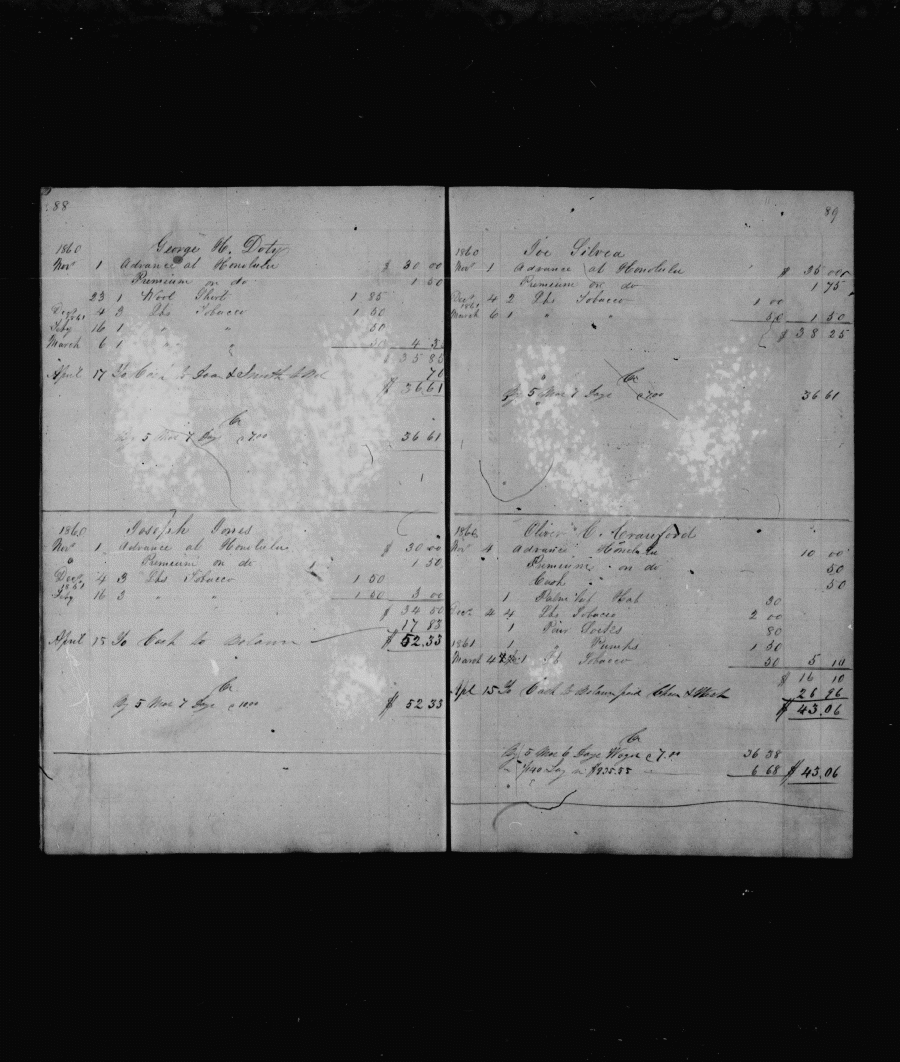 88
1860 George H. Doty
Novr 1 Advance at Honolulu $ 30 00
Premium on do 1 50
23 1 Wool Shirt 1 85
Decr 4 3 lbs Tobacco 1 50
1861
Feby 16 1 " " 50
March 6 1 " " 50 4 35
$ 35 85
April 17 To Cash to 76
$ 36 61
Cr
By 5 Mos 7 Days @ 7.00 36 61
1860 Joseph Jones
Novr 1 Advance at Honolulu $ 30 00
" Premium on do 1 50
Decr 4 3 lbs Tobacco 1 50
1861
Feby 16 3 " " 1 50 3 00
$ 34 50
17 83
April 15 To Cash to $ 52.33
Cr
By 5 Mos 7 Days @ 10.00 $ 52 33
89
1860 Joe Silvea
Novr 1 Advance at Honolulu $ 35 00
Premium on do 1 75
Decr 4 2 lbs Tobacco 1 00
1861
March 6 1 " " 50 1 50
$ 38 25
Cr
By 5 Mos 7 Days @ 7.00 36 61
1860 Oliver C. Crawford
Novr 4 Advance Honolulu 10 00
Premium on do 50
Cash 50
1 Palm Leaf Hat 30
Decr 4 4 lbs Tobacco 2 00
1 Pair Socks 80
1861 1 " Pumps 1 50
March 4 1 lb Tobacco 50 5 10
$ 16 10
Apl 15 To Cash to 26 96
$ 43.06
Cr
By 5 Mos 6 Days Wages @ 7.00 36 38
" 1/140 Lay on $935.85 6 68 $ 43.06